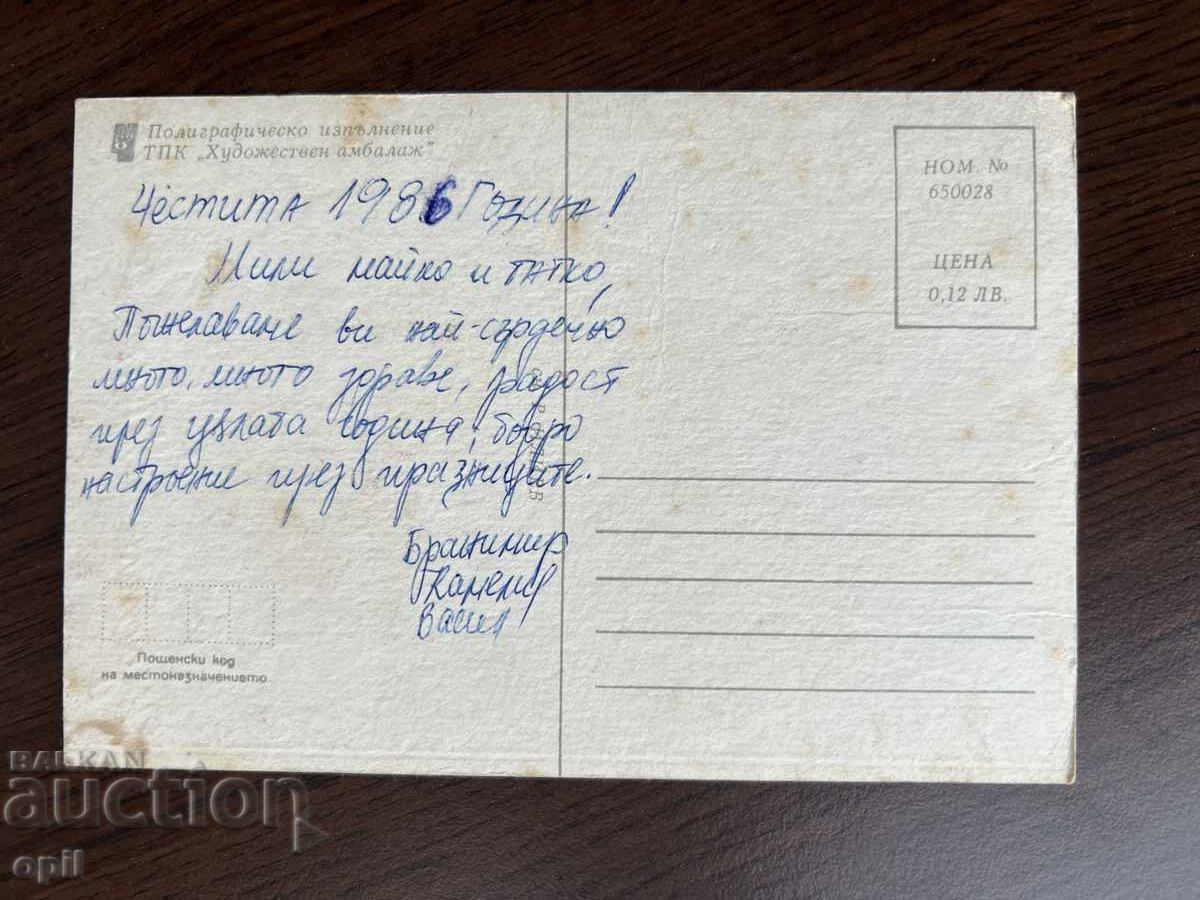 Полиграфическо изпълнение
ТПК „Художествен амбалаж"
Честита 1986 Година!
Мили майко и татко,
Пожелаваме ви най-сърдечно
много, много здраве, радост
през цялата година, добро
настроение през празниците.
Бранимир
Камелия
Васил
Пощенски код
на местоназначението
НОМ. №
650028
ЦЕНА
0,12 ЛВ.
BALKAN
auction
opil